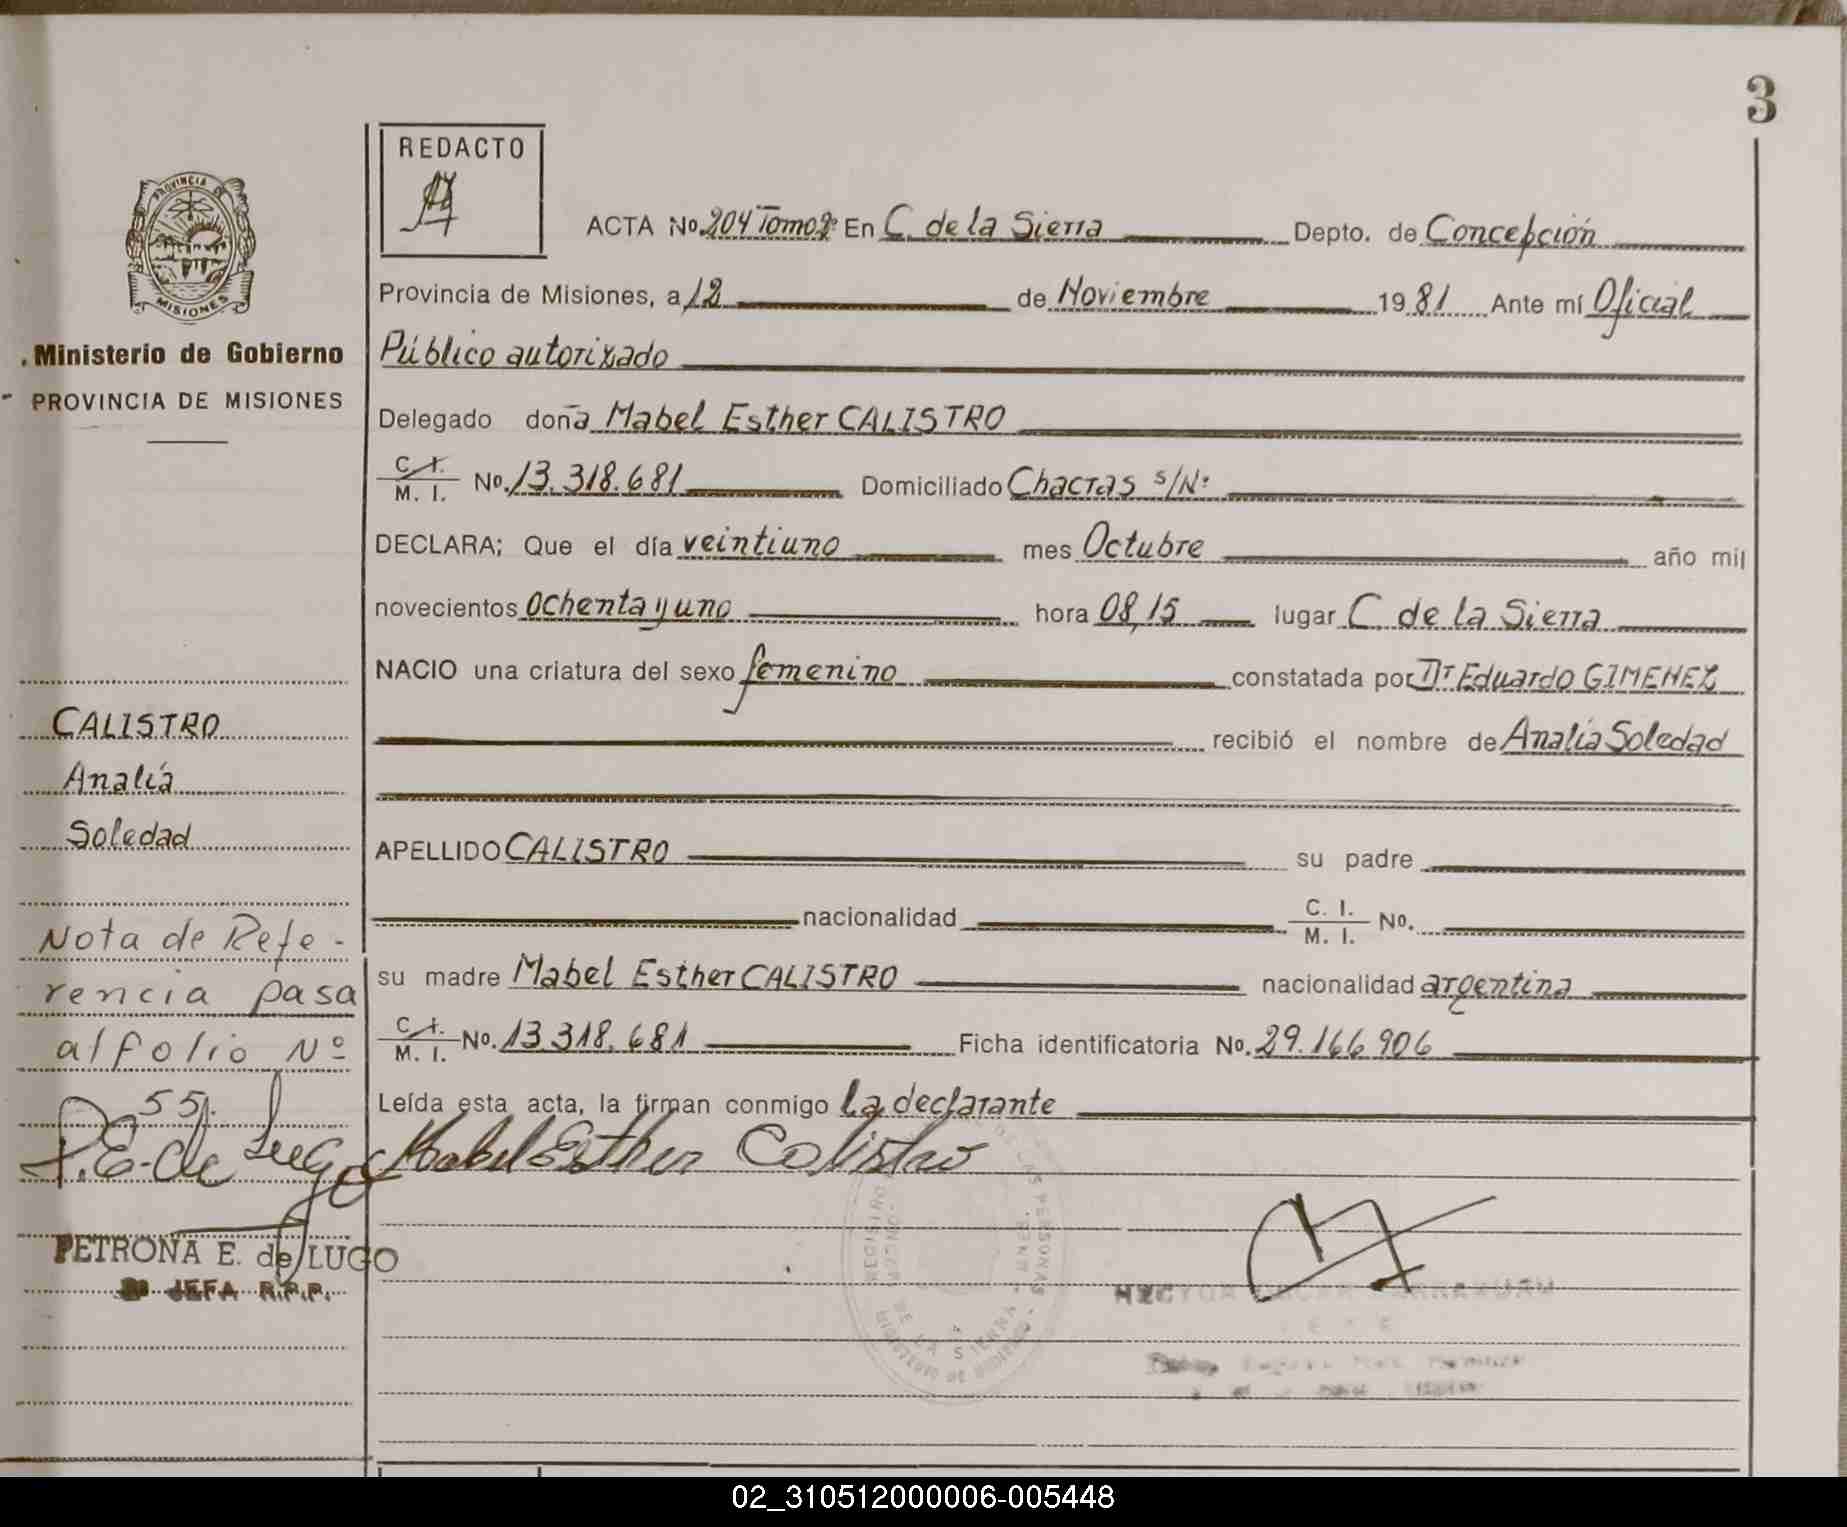 3
REDACTO
PROVINCIA DE
MISIONES
Ministerio de Gobierno
PROVINCIA DE MISIONES
ACTA No. 204 Tomo 2º En C. de la Sierra Depto. de Concepción
Provincia de Misiones, a 12 de Noviembre 1981 Ante mí Oficial
Público autorizado
Delegado doña Mabel Esther CALISTRO
C. I.
M. I. No. 13.318.681 Domiciliado Chacras s/Nº
DECLARA; Que el día veintiuno mes Octubre año mil
novecientos ochenta y uno hora 08,15 lugar C. de la Sierra
NACIO una criatura del sexo femenino constatada por Dr Eduardo GIMENEZ
recibió el nombre de Analía Soledad
APELLIDO CALISTRO su padre
nacionalidad C. I.
M. I. No.
su madre Mabel Esther CALISTRO nacionalidad argentina
C. I.
M. I. No. 13.318.681 Ficha identificatoria No. 29.166.906
Leída esta acta, la firman conmigo La declarante
Mabel Esther Calistro
CALISTRO
Analía
Soledad
Nota de Refe-
rencia pasa
al folio Nº
55.
P.E. de Lugo
PETRONA E. de LUGO
JEFA R.P.P.
HECTOR
DE LAS PERSONAS
DE LA SIERRA
02_310512000006-005448